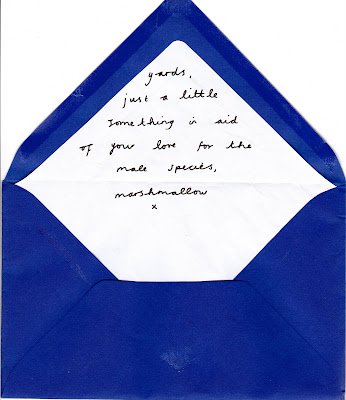 yards,
just a little
something in aid
of your love for the
male species,
marshmallow
x